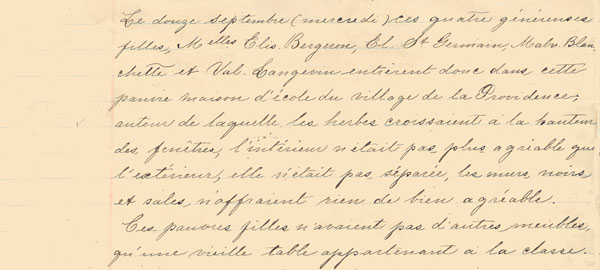 Le douze septembre (mercredi) ces quatre généreuses
filles, Melles Elis. Bergeron, El. St Germain, Malv. Blan
chette et Val. Langevin entrèrent donc dans cette
pauvre maison d'école du village de la Providence,
autour de laquelle les herbes croissaient à la hauteur
des fenêtres, l'intérieur n'était pas plus agréable que
l'extérieur, elle n'était pas séparée, les murs noirs
et sales n'offraient rien de bien agréable.
Ces pauvres filles n'avaient pas d'autres meubles,
qu'une vieille table appartenant à la classe.